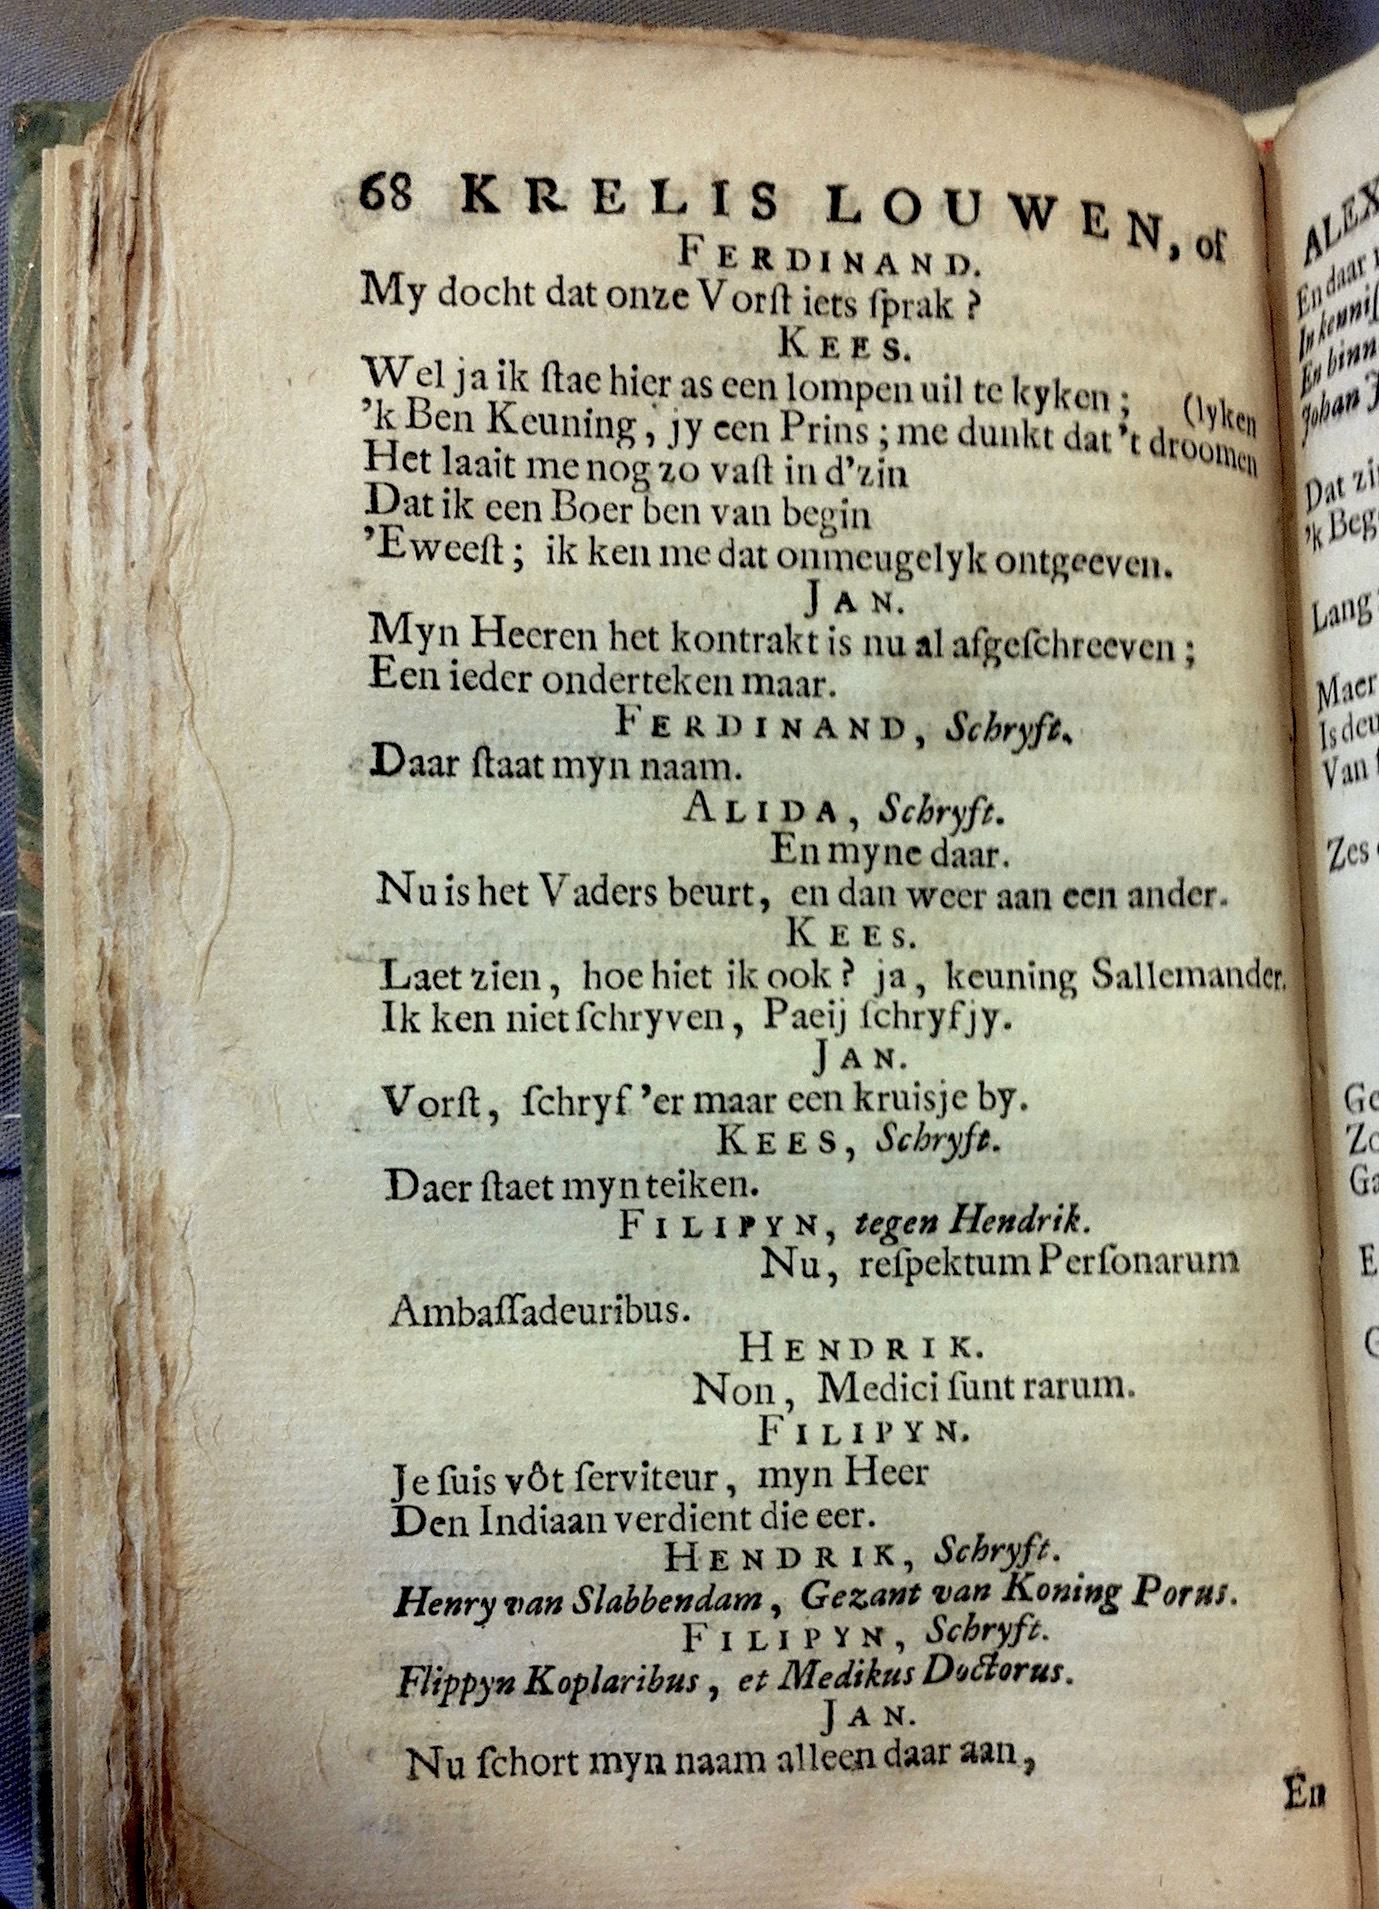 68 KRELIS LOUWEN, of
FERDINAND.
My docht dat onze Vorſt iets ſprak ?
KEES.
Wel ja ik ſtae hier as een lompen uil te kyken ; (lyken
’k Ben Keuning, jy een Prins ; me dunkt dat ’t droomen
Het laait me nog zo vaſt in d’zin
Dat ik een Boer ben van begin
’Eweeſt ; ik ken me dat onmeugelyk ontgeeven.
JAN.
Myn Heeren het kontrakt is nu al afgeſchreeven ;
Een ieder onderteken maar.
FERDINAND, Schryft.
Daar ſtaat myn naam.
ALIDA, Schryft.
En myne daar.
Nu is het Vaders beurt, en dan weer aan een ander.
KEES.
Laet zien, hoe hiet ik ook ? ja, keuning Sallemander.
Ik ken niet ſchryven, Paeij ſchryf jy.
JAN.
Vorſt, ſchryf ’er maar een kruisje by.
KEES, Schryft.
Daer ſtaet myn teiken.
FILIPYN, tegen Hendrik.
Nu, reſpektum Perſonarum
Ambaſſadeuribus.
HENDRIK.
Non, Medici ſunt rarum.
FILIPYN.
Je ſuis vôt ſerviteur, myn Heer
Den Indiaan verdient die eer.
HENDRIK, Schryft.
Henry van Slabbendam, Gezant van Koning Porus.
FILIPYN, Schryft.
Flippyn Koplaribus, et Medikus Doctorus.
JAN.
Nu ſchort myn naam alleen daar aan,
En
ALEX
En daar
En binn
Johan
Dat
’k Beg
Lang
Maer
Is deu
Van
Zes
Ge
Zo
Ga
E
G